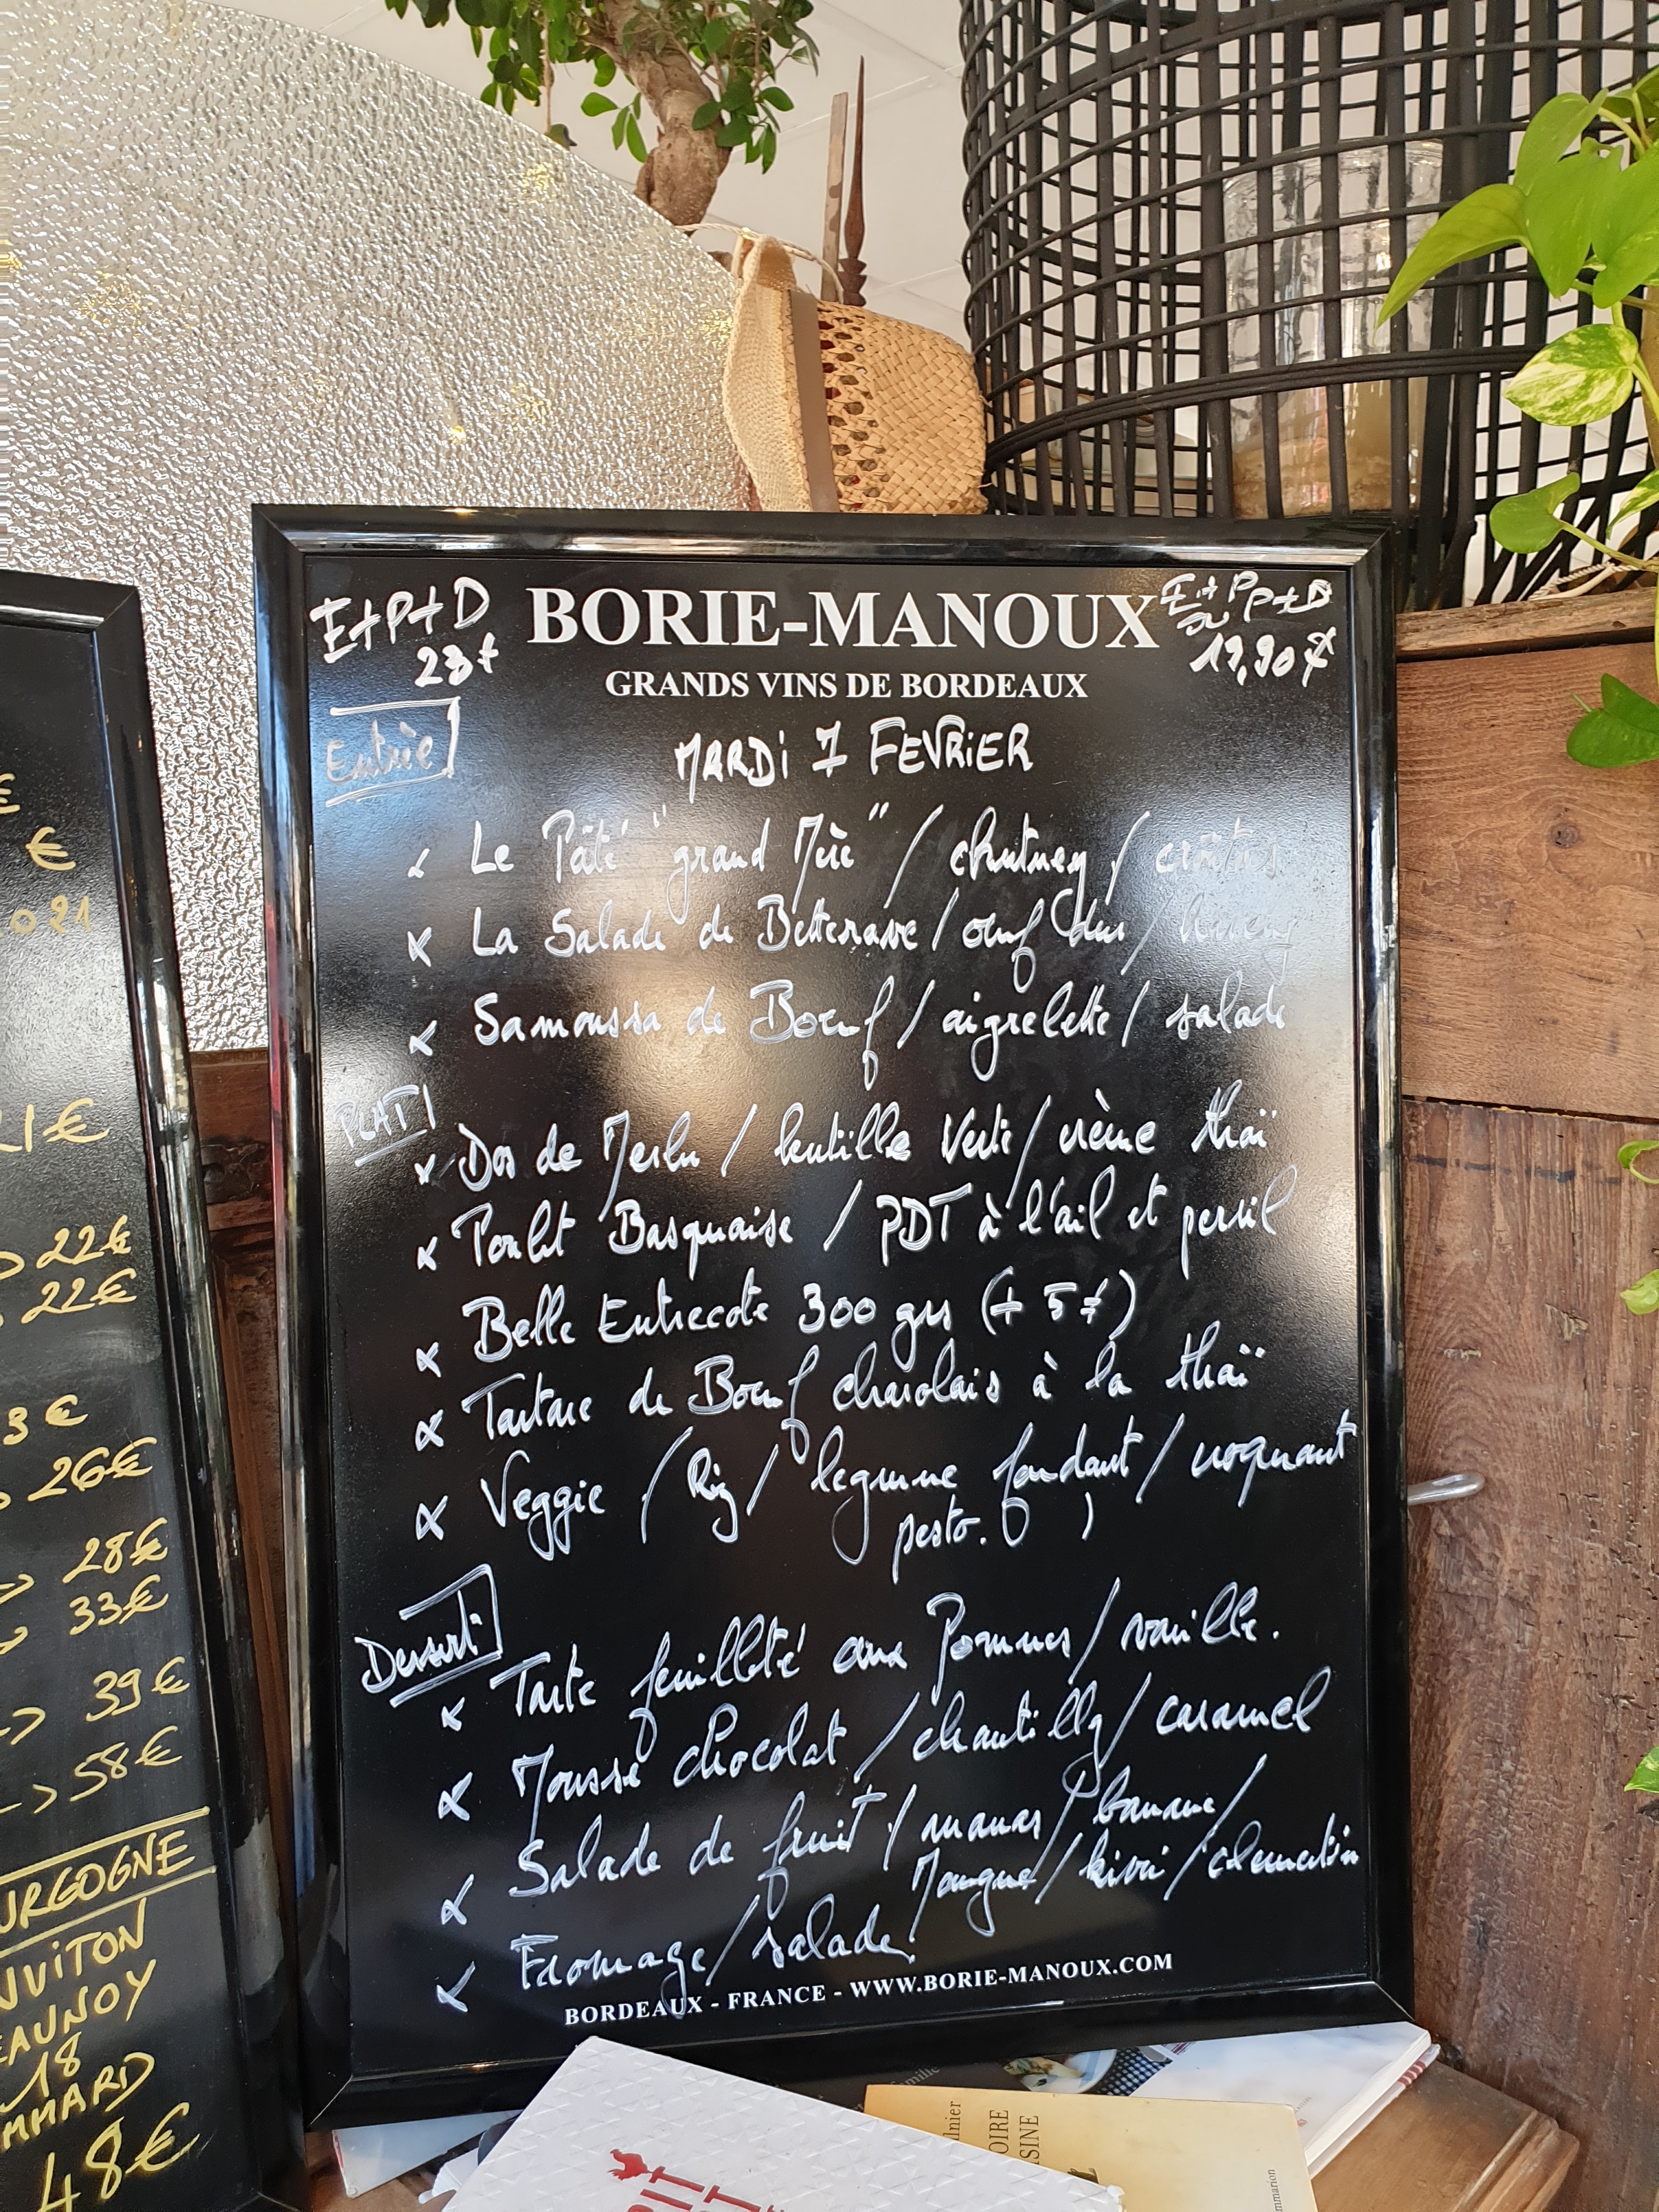 E+P+D
23€
BORIE-MANOUX
E+P
ou P+D
19,90€
GRANDS VINS DE BORDEAUX
Entrée
MARDi 7 FEVRiER
Le Pâté "grand Mère" / chutney / croûtons
La Salade de Betterave / œuf dur / hareng
Samoussa de Bœuf / aigrelette / salade
PLAT
Dos de Merlu / lentille Verte / crème thaï
Poulet Basquaise / PDT à l'ail et persil
Belle Entrecote 300 grs (+ 5€)
Tartare de Bœuf charolais à la thaï
Veggie ( Riz / legume fondant / croquant
pesto. )
Dessert
Tarte feuilleté aux Pommes / vanille.
Mousse chocolat / chantilly / caramel
Salade de fruit / ananas / banane /
Mangue / kiwi / clementin
Fromage / salade
BORDEAUX - FRANCE - WWW.BORIE-MANOUX.COM
€
€
021
€
22€
22€
3€
26€
28€
33€
39€
58€
URGOGNE
NViTON
EAUNOY
18
MMARD
48€
famille
OIRE
SINE